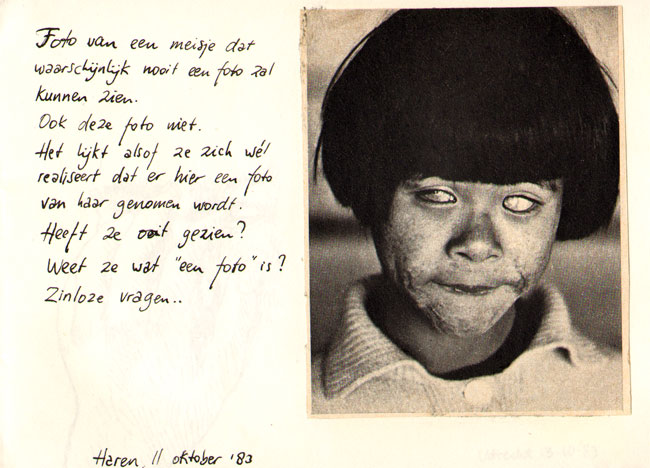 Foto van een meisje dat
waarschijnlijk nooit een foto zal
kunnen zien.
Ook deze foto niet.
Het lijkt alsof ze zich wél
realiseert dat er hier een foto
van haar genomen wordt.
Heeft ze ooit gezien?
Weet ze wat "een foto" is?
Zinloze vragen..
Haren, 11 oktober '83